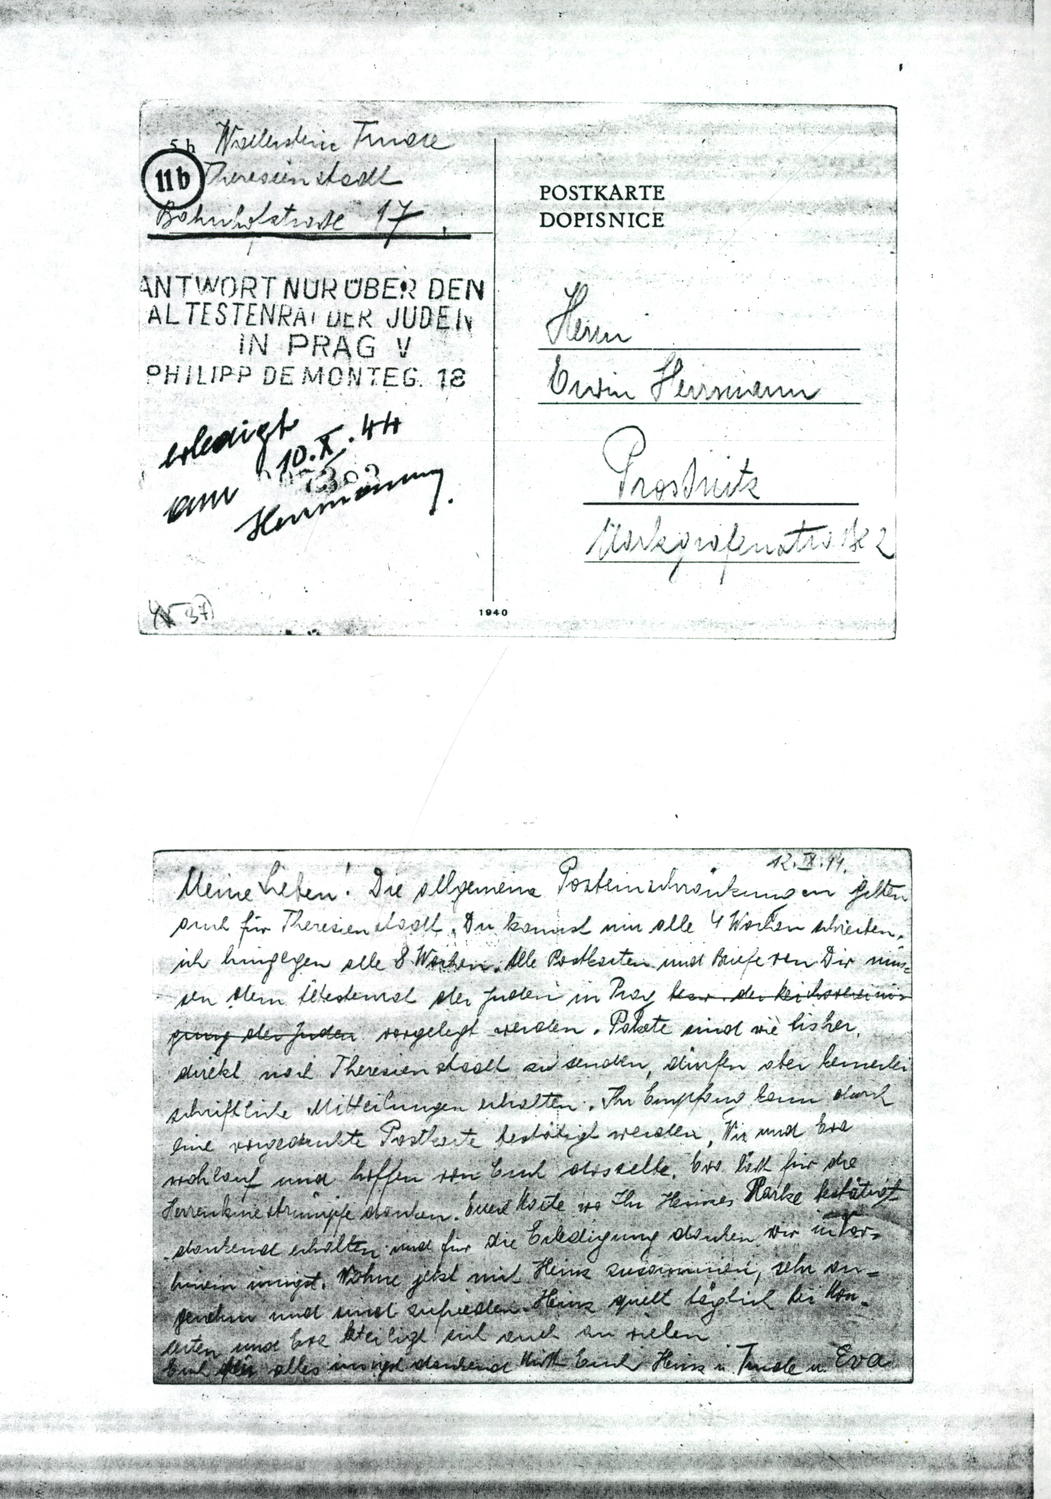 5 h Wallerstein Trude
11b Theresienstadt
Bahnhofstrasse 17
ANTWORT NUR ÜBER DEN
ALTESTENRAT DER JUDEN
IN PRAG V
PHILIPP DE MONTEG. 18
erledigt
am 10.X.44
Herrmann
37
POSTKARTE
DOPISNICE
Herrn
Erwin Herrmann
Prossnitz
Markgrafenstrasse 2
1940
12.IX.44.
Meine Lieben! Die allgemeine Posteinschränkungen gelten
auch für Theresienstadt. Du kannst mir alle 4 Wochen schreiben,
ich hingegen alle 8 Wochen. Alle Postkarten und Briefe von Dir müs-
sen dem Ältestenrat der Juden in Prag bzw. der Reichsvereini-
gung der Juden vorgelegt werden. Pakete sind wie bisher,
direkt nach Theresienstadt zu senden, dürfen aber keinerlei
schriftliche Mitteilungen enthalten. Ihr Empfang kann durch
eine vorgedruckte Postkarte bestätigt werden. Wir und Eva
wohlauf und hoffen von Euch dasselbe. Eva läßt für die
Herrenkniestrümpfe danken. Euere Karte wo Ihr Heinzes Marke bestätigt
dankend erhalten und für die Erledigung danken wir
innigst. Wohne jetzt mit Heinz zusammen, sehr an-
genehm und sind zufrieden. Heinz spielt täglich bei Kon-
zerten und Eva beteiligt sich auch an vielen
Euch für alles innigst dankend Euch Heinz u. Trude u. Eva